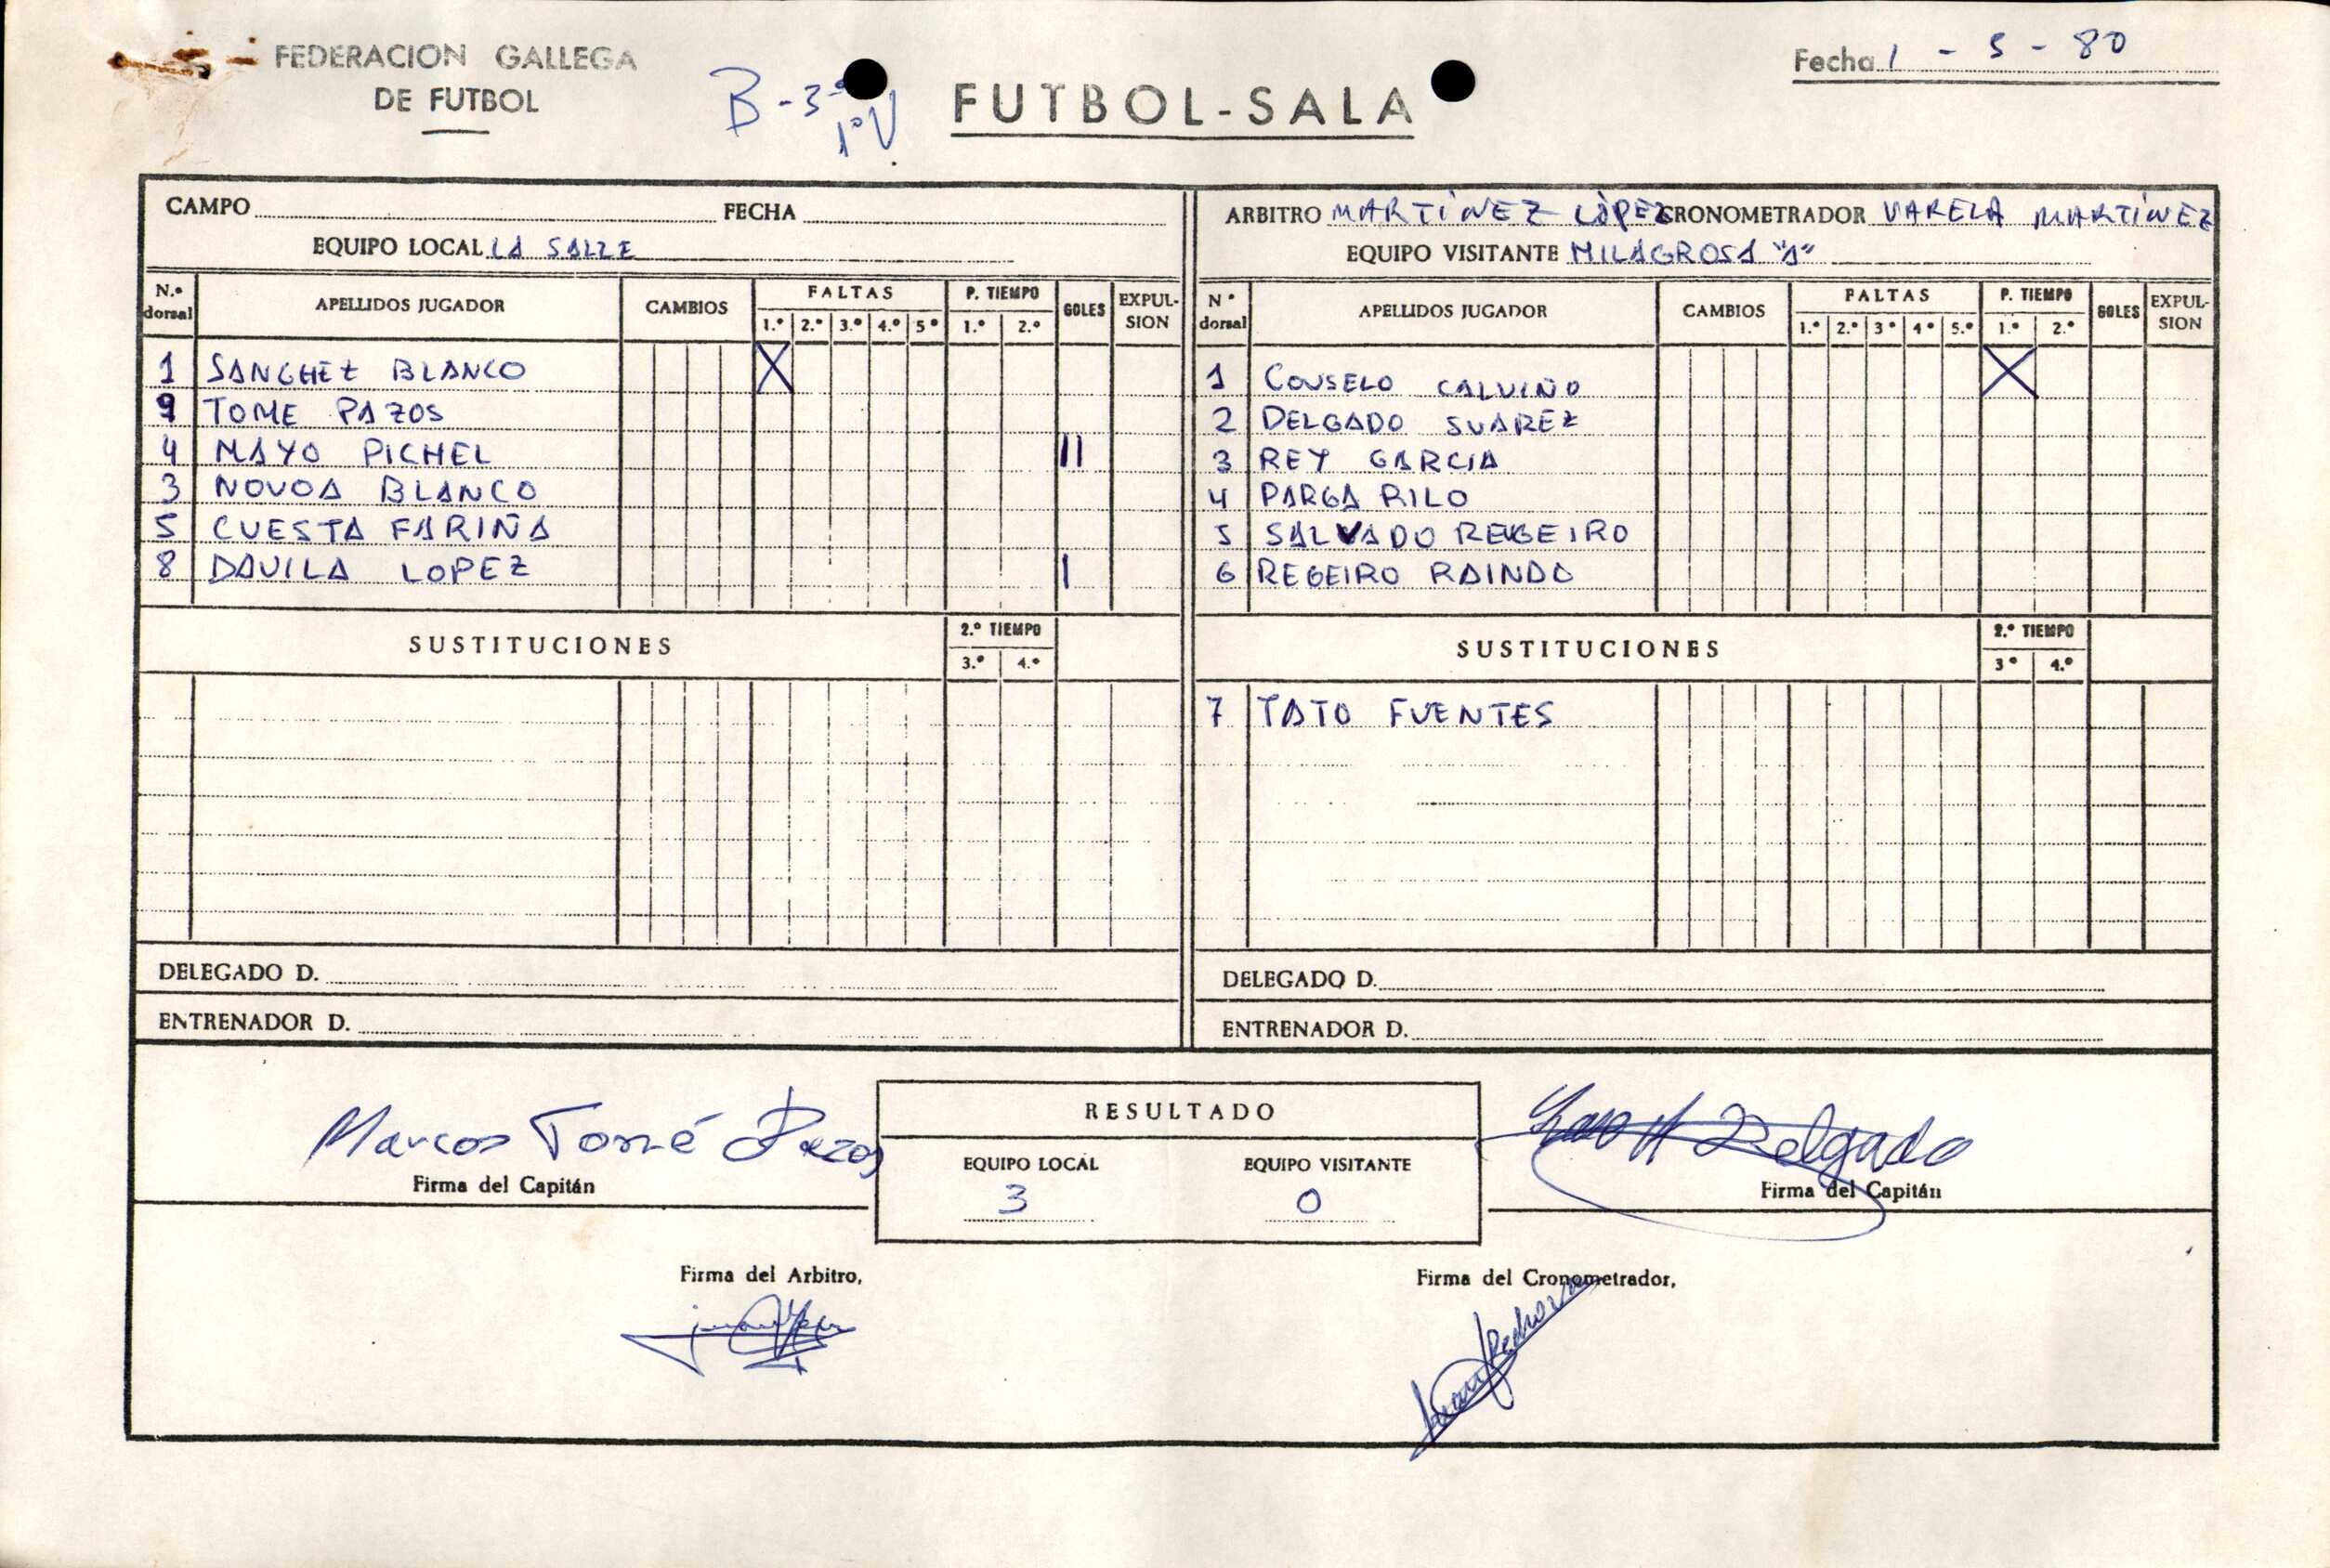 FEDERACION GALLEGA
DE FUTBOL
B-3ª
1º V
FUTBOL-SALA
Fecha 1 - 5 - 80
CAMPO FECHA
EQUIPO LOCAL LA SALLE
N.º dorsal APELLIDOS JUGADOR CAMBIOS FALTAS P. TIEMPO GOLES EXPULSION
1.º 2.º 3.º 4.º 5º 1.º 2.º
1 SANCHEZ BLANCO X
9 TOME PAZOS
4 MAYO PICHEL II
3 NOVOA BLANCO
5 CUESTA FARIÑA
8 DAVILA LOPEZ I
SUSTITUCIONES 2.º TIEMPO
3.º 4.º
DELEGADO D.
ENTRENADOR D.
ARBITRO MARTÍNEZ LÓPEZ CRONOMETRADOR VARELA MARTÍNEZ
EQUIPO VISITANTE MILAGROSA "A"
Nº dorsal APELLIDOS JUGADOR CAMBIOS FALTAS P. TIEMPO GOLES EXPULSION
1.º 2.º 3º 4º 5.º 1.º 2.º
1 COUSELO CALVIÑO X
2 DELGADO SUAREZ
3 REY GARCIA
4 PARGA RILO
5 SALVADO REGEIRO
6 REGEIRO RAINDO
SUSTITUCIONES 2.º TIEMPO
3º 4.º
7 TATO FUENTES
DELEGADO D.
ENTRENADOR D.
Marcos Tomé Pazos
Firma del Capitán
RESULTADO
EQUIPO LOCAL EQUIPO VISITANTE
3 0
Delgado
Firma del Capitán
Firma del Arbitro,
Firma del Cronometrador,